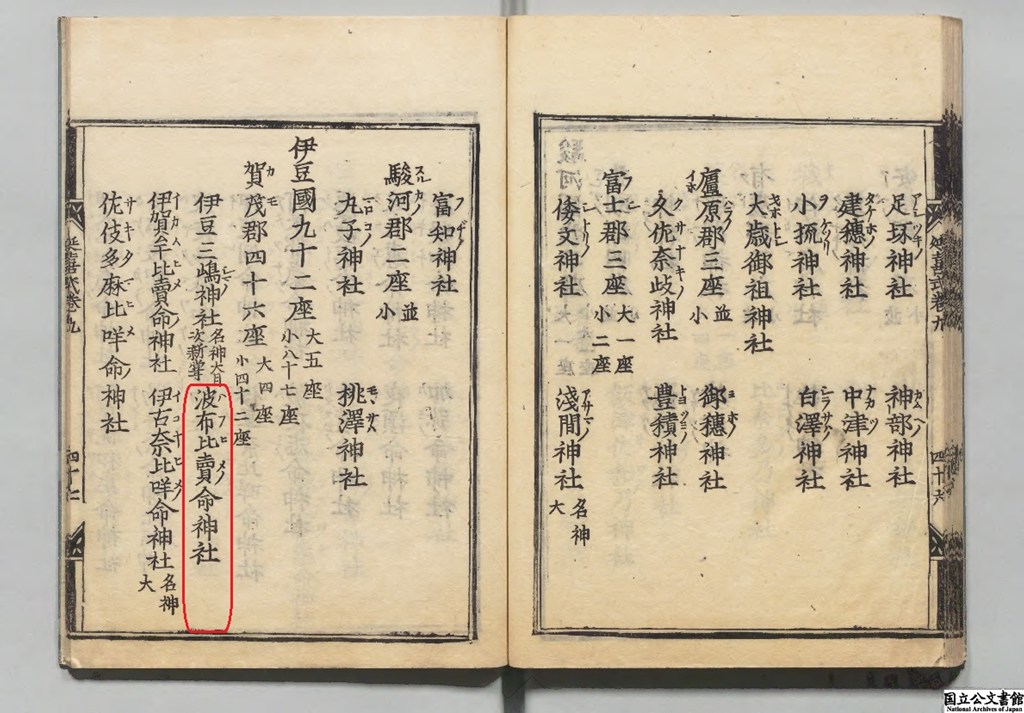 延喜式卷九 四十六
足坏神社 神部神社
建穗神社 中津神社
小梳神社 白澤神社
大歳御祖神社
廬原郡三座 並小
御穗神社
久佐奈岐神社 豊積神社
富士郡三座 大一座 小二座
倭文神社 淺間神社 名神大
富知神社
駿河郡二座 並小
丸子神社 桃澤神社
伊豆國九十二座 大五座 小八十七座
賀茂郡四十六座 大四座 小四十二座
伊豆三嶋神社 名神大月次新嘗 波布比賣命神社
伊賀牟比賣命神社 伊古奈比咩命神社 名神大
佐伎多麻比咩命神社
延喜式卷九 四十七
国立公文書館
National Archives of Japan